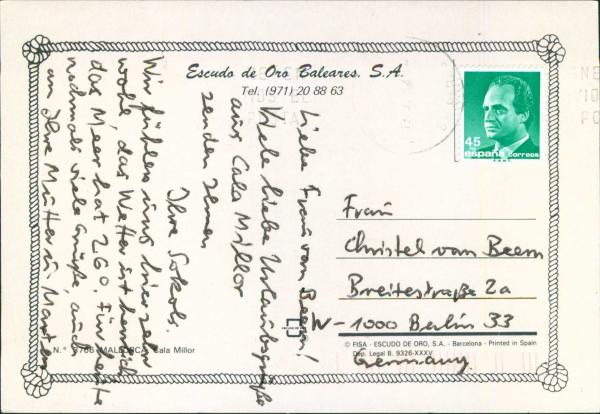 Escudo de Oro Baleares, S.A.
Tel. (971) 20 88 63
Liebe Frau van Beem!
Viele liebe Urlaubsgrüße
aus Cala Millor
senden Ihnen
Ihre Sokols.
Wir fühlen uns hier sehr
wohl, das Wetter ist herrlich
das Meer hat 26°. Für heute
nochmals viele Grüße, auch
an Ihre Mutter u.
45
españa correos
F.N.M.T.
Frau
Christel van Beem
Breitestraße 2a
W-1000 Berlin 33
Germany
© FISA - ESCUDO DE ORO, S.A. - Barcelona - Printed in Spain
Dep. Legal B. 9326-XXXV
N.° MALLORCA Cala Millor